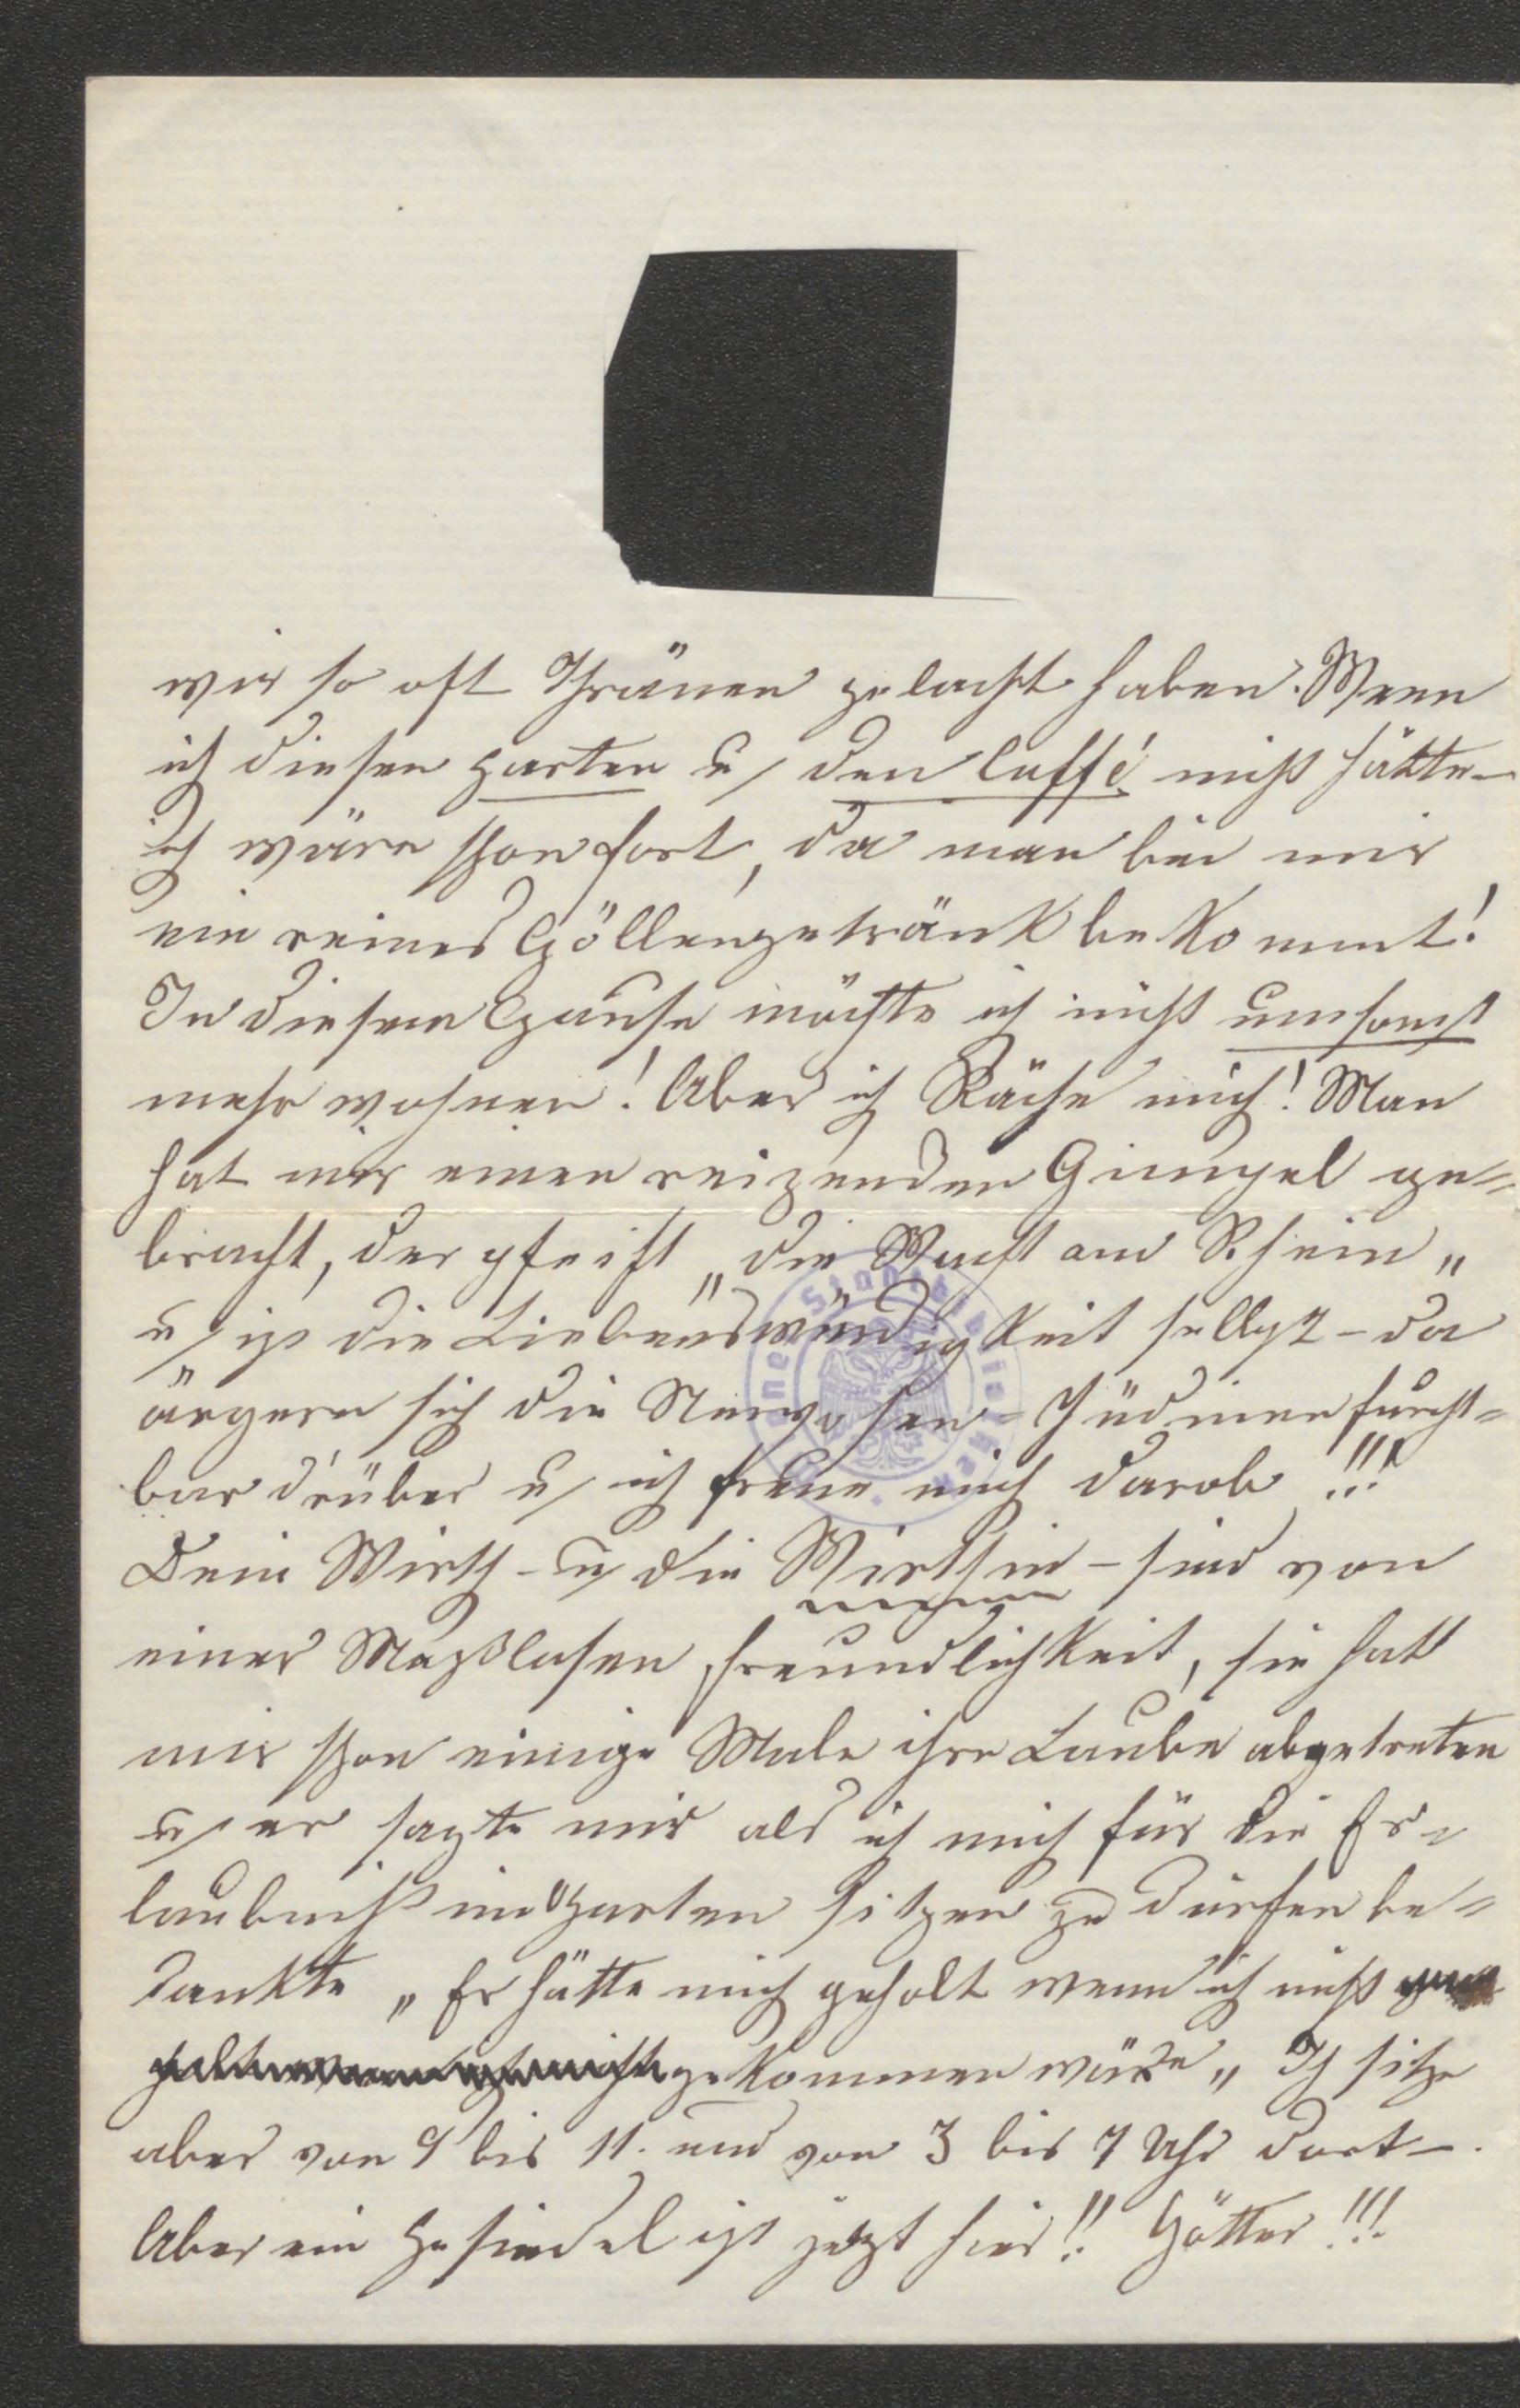 wir so oft Thränen gelacht haben. Wenn
ich diesen Garten u/ den Caffé nicht hätte –
ich wäre schon fort, da man bei mir
ein reines Höllengetränk bekommt!
In diesem Hause möchte ich nicht umsonst
mehr wohnen! Aber ich Räche mich! Man
hat mir einen reizenden Gimpel ge=
bracht, der pfeift „die Wacht am Rhein„
u/ ist die Liebenswürdigkeit selbst – da
ärgern sich die Nervosen = Jüdinen furcht=
bar d'rüber u/ ich freue mich darob !!!
Dein Wirth – u/ die Wirthin – sind von
einer Maßlosen Freundlichkeit, sie hat
mir schon einige Male ihre Laube abgetreten
u/ er sagte mir als ich mich für die Er=
laubniß im Garten sitzen zu dürfen be=
dankte „Er hätte mich geholt wenn ich nicht
gekommen wäre„ Ich sitze
aber von 9 bis 11. und von 3 bis 7 Uhr dort –.
Aber ein Gesindel ist jetzt hier!! Götter !!!